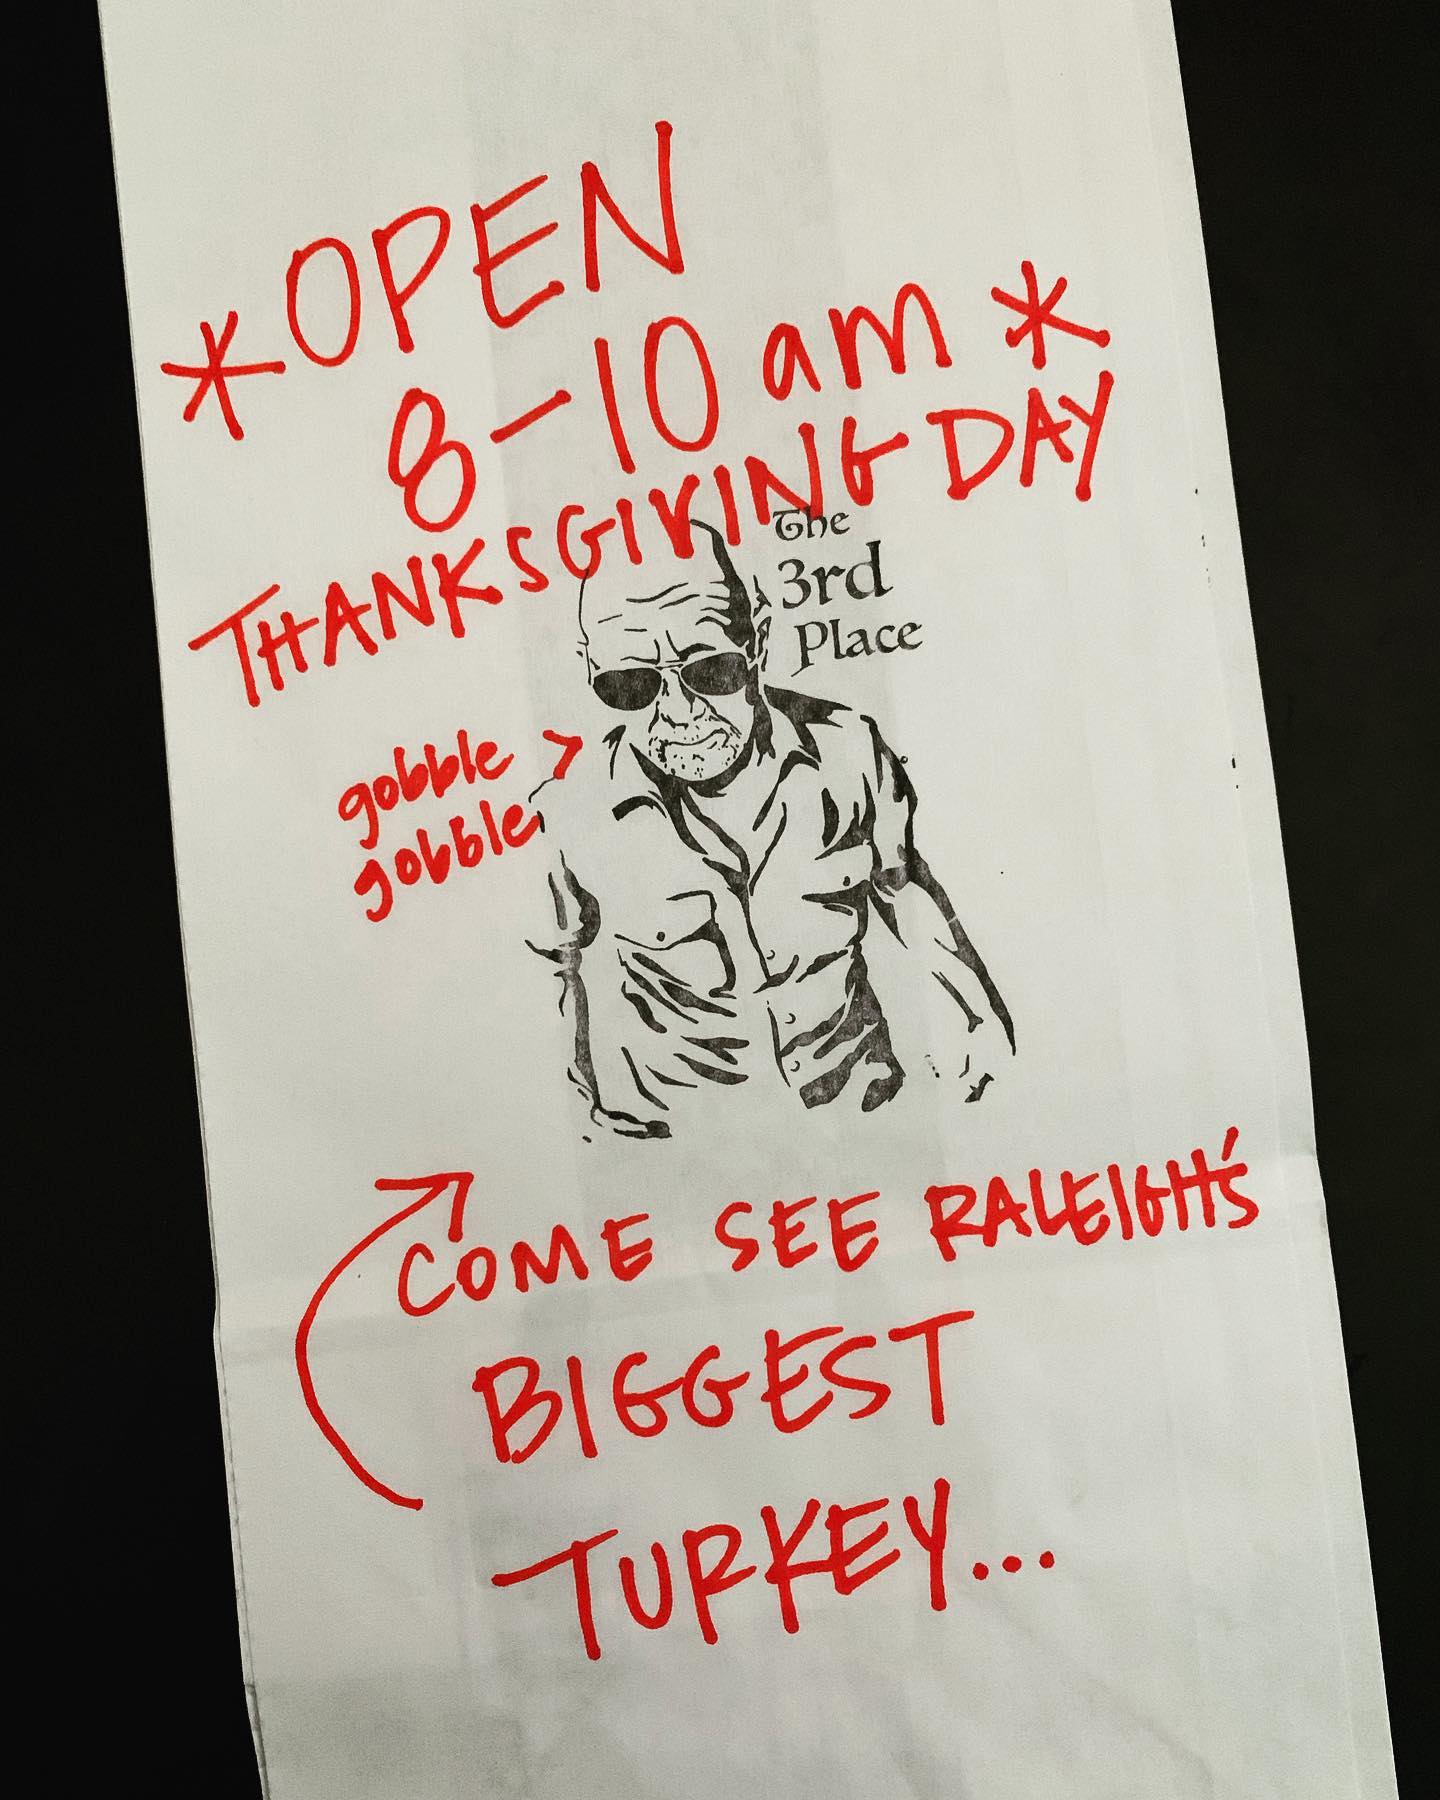 *OPEN
8-10 am *
THANKSGIVING DAY
The
3rd
Place
gobble >
gobble
COME SEE RALEIGH'S
BIGGEST
TURKEY...